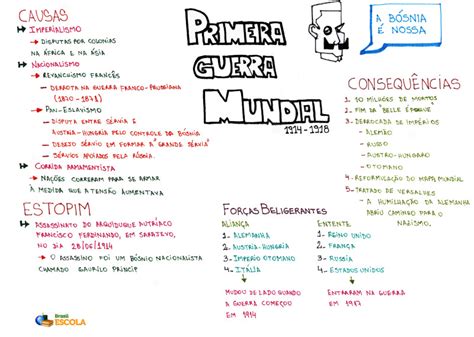 CAUSAS
IMPERIALISMO
DISPUTAS POR COLONIAS
NA ÁFRICA E NA ÁSIA
NACIONALISMO
REVANCHISMO FRANCÊS
DERROTA NA GUERRA FRANCO-PRUSSIANA
(1870-1871)
PAN-ESLAVISMO
DISPUTA ENTRE SÉRVIA E
AUSTRIA-HUNGRIA PELO CONTROLE DA BÓSNIA
DESEJO SÉRVIO EM FORMAR A "GRANDE SÉRVIA"
SÉRVIOS APOIADOS PELA RÚSSIA
CORRIDA ARMAMENTISTA
NAÇÕES CORRERAM PARA SE ARMAR
À MEDIDA QUE A TENSÃO AUMENTAVA
ESTOPIM
ASSASSINATO DO ARQUIDUQUE AUTRÍACO
FRANCISCO FERDINANDO, EM SARAJEVO,
NO DIA 28/06/1914
O ASSASSINO FOI UM BÓSNIO NACIONALISTA
CHAMADO GAVRILO PRINCIP
Brasil
ESCOLA
PRIMEIRA
GUERRA
MUNDIAL
1914-1918
A BÓSNIA
É NOSSA
FORÇAS BELIGERANTES
ALIANÇA
1-ALEMANHA
2-AUSTRIA-HUNGRIA
3-IMPÉRIO OTOMANO
4-ITÁLIA
MUDOU DE LADO QUANDO
A GUERRA COMEÇOU
EM 1914
ENTENTE
1-REINO UNIDO
2-FRANÇA
3-RUSSIA
4-ESTADOS UNIDOS
ENTRARAM NA GUERRA
EM 1917
CONSEQUÊNCIAS
1-20 MILHÕES DE MORTOS
2-FIM DA "BELLE ÉPOQUE"
3-DERROCADA DE IMPÉRIOS
ALEMÃO
RUSSO
AUSTRO-HUNGARO
OTOMANO
4-REFORMULAÇÃO DO MAPA MUNDIAL
5-TRATADO DE VERSALHES
A HUMILHAÇÃO DA ALEMANHA
ABRIU CAMINHO PARA O
NAZISMO.